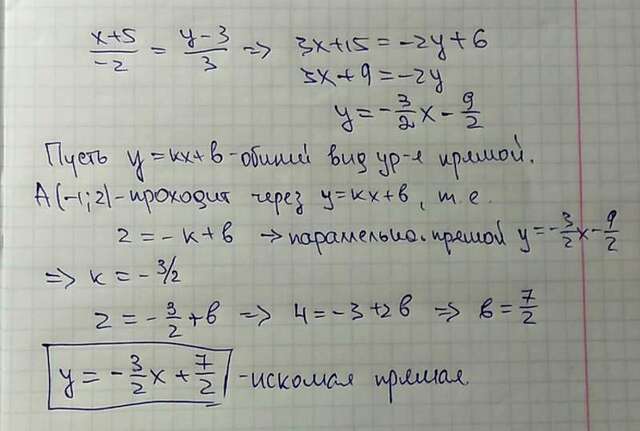 (x+5)/(-2) = (y-3)/3 => 3x+15 = -2y+6
3x+9 = -2y
y = -3/2 x - 9/2
Пусть y=kx+b - общий вид ур-я прямой.
A(-1;2) - проходит через y=kx+b, т.е.
2 = -k+b → параллельно прямой y = -3/2 x - 9/2
=> k = -3/2
2 = -3/2 + b => 4 = -3+2b => b = 7/2
y = -3/2 x + 7/2 - искомая прямая.